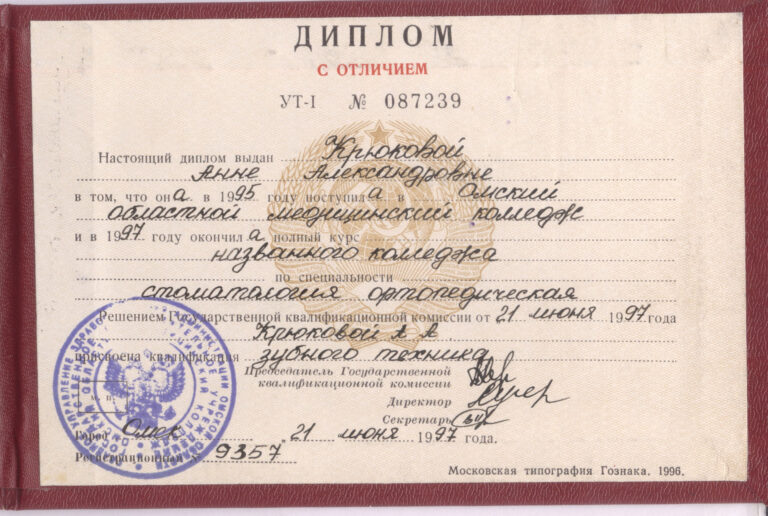 ДИПЛОМ
С ОТЛИЧИЕМ
УТ-I № 087239
Настоящий диплом выдан Крюковой
Анне Александровне
в том, что она в 1995 году поступила в Омский
областной медицинский колледж
и в 1997 году окончила полный курс
названного колледжа
по специальности
стоматология ортопедическая
Решением Государственной квалификационной комиссии от 21 июня 1997 года
Крюковой А А
присвоена квалификация зубного техника
Председатель Государственной
квалификационной комиссии
Директор
Секретарь
М. П.
Город Омск 21 июня 1997 года.
Регистрационный № 9357
Московская типография Гознака. 1996.